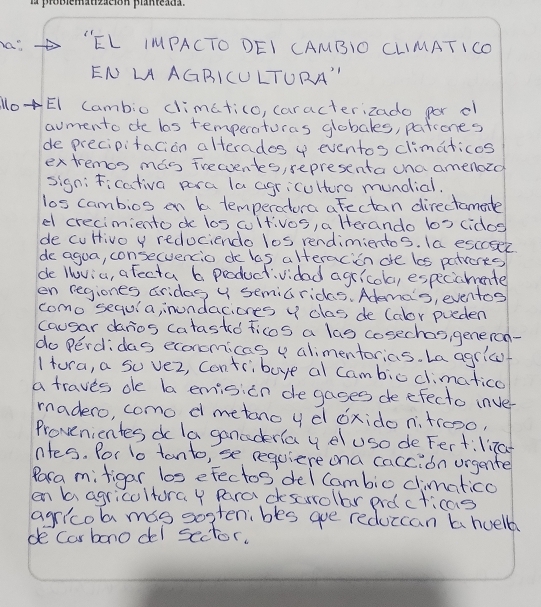 la problematización planteada.
→ "EL IMPACTO DEL CAMBIO CLIMATICO
EN LA AGRICULTURA"
llo → El cambio climático, caracterizado por el
aumento de las temperaturas globales, patrones
de precipitación alterados y eventos climáticos
extremos más frecuentes, representa una amenaza
significativa para la agricultura mundial.
los cambios en la temperatura afectan directamente
el crecimiento de los cultivos, alterando los ciclos
de cultivo y reduciendo los rendimientos. la escasez
de agua, consecuencia de las alteración de los patrones
de lluvia, afecta la productividad agrícola, especialmente
en regiones áridas y semiáridas. Además, eventos
como sequía, inundaciones y olas de calor pueden
causar daños catastróficos a las cosechas, generan-
do pérdidas economicas y alimentarias. La agricu-
ltura, a su vez, contribuye al cambio climatico
a través de la emisión de gases de efecto inve-
rnadero, como el metano y el óxido nitroso,
Provenientes de la ganadería y el uso de Fertiliza-
ntes. Por lo tanto, se requiere una cacción urgente
Para mitigar los efectos del cambio climatico
en la agricultura y Para desarrollar prácticas
agrícola más sostenibles que reduzcan la huella
de carbono del sector.